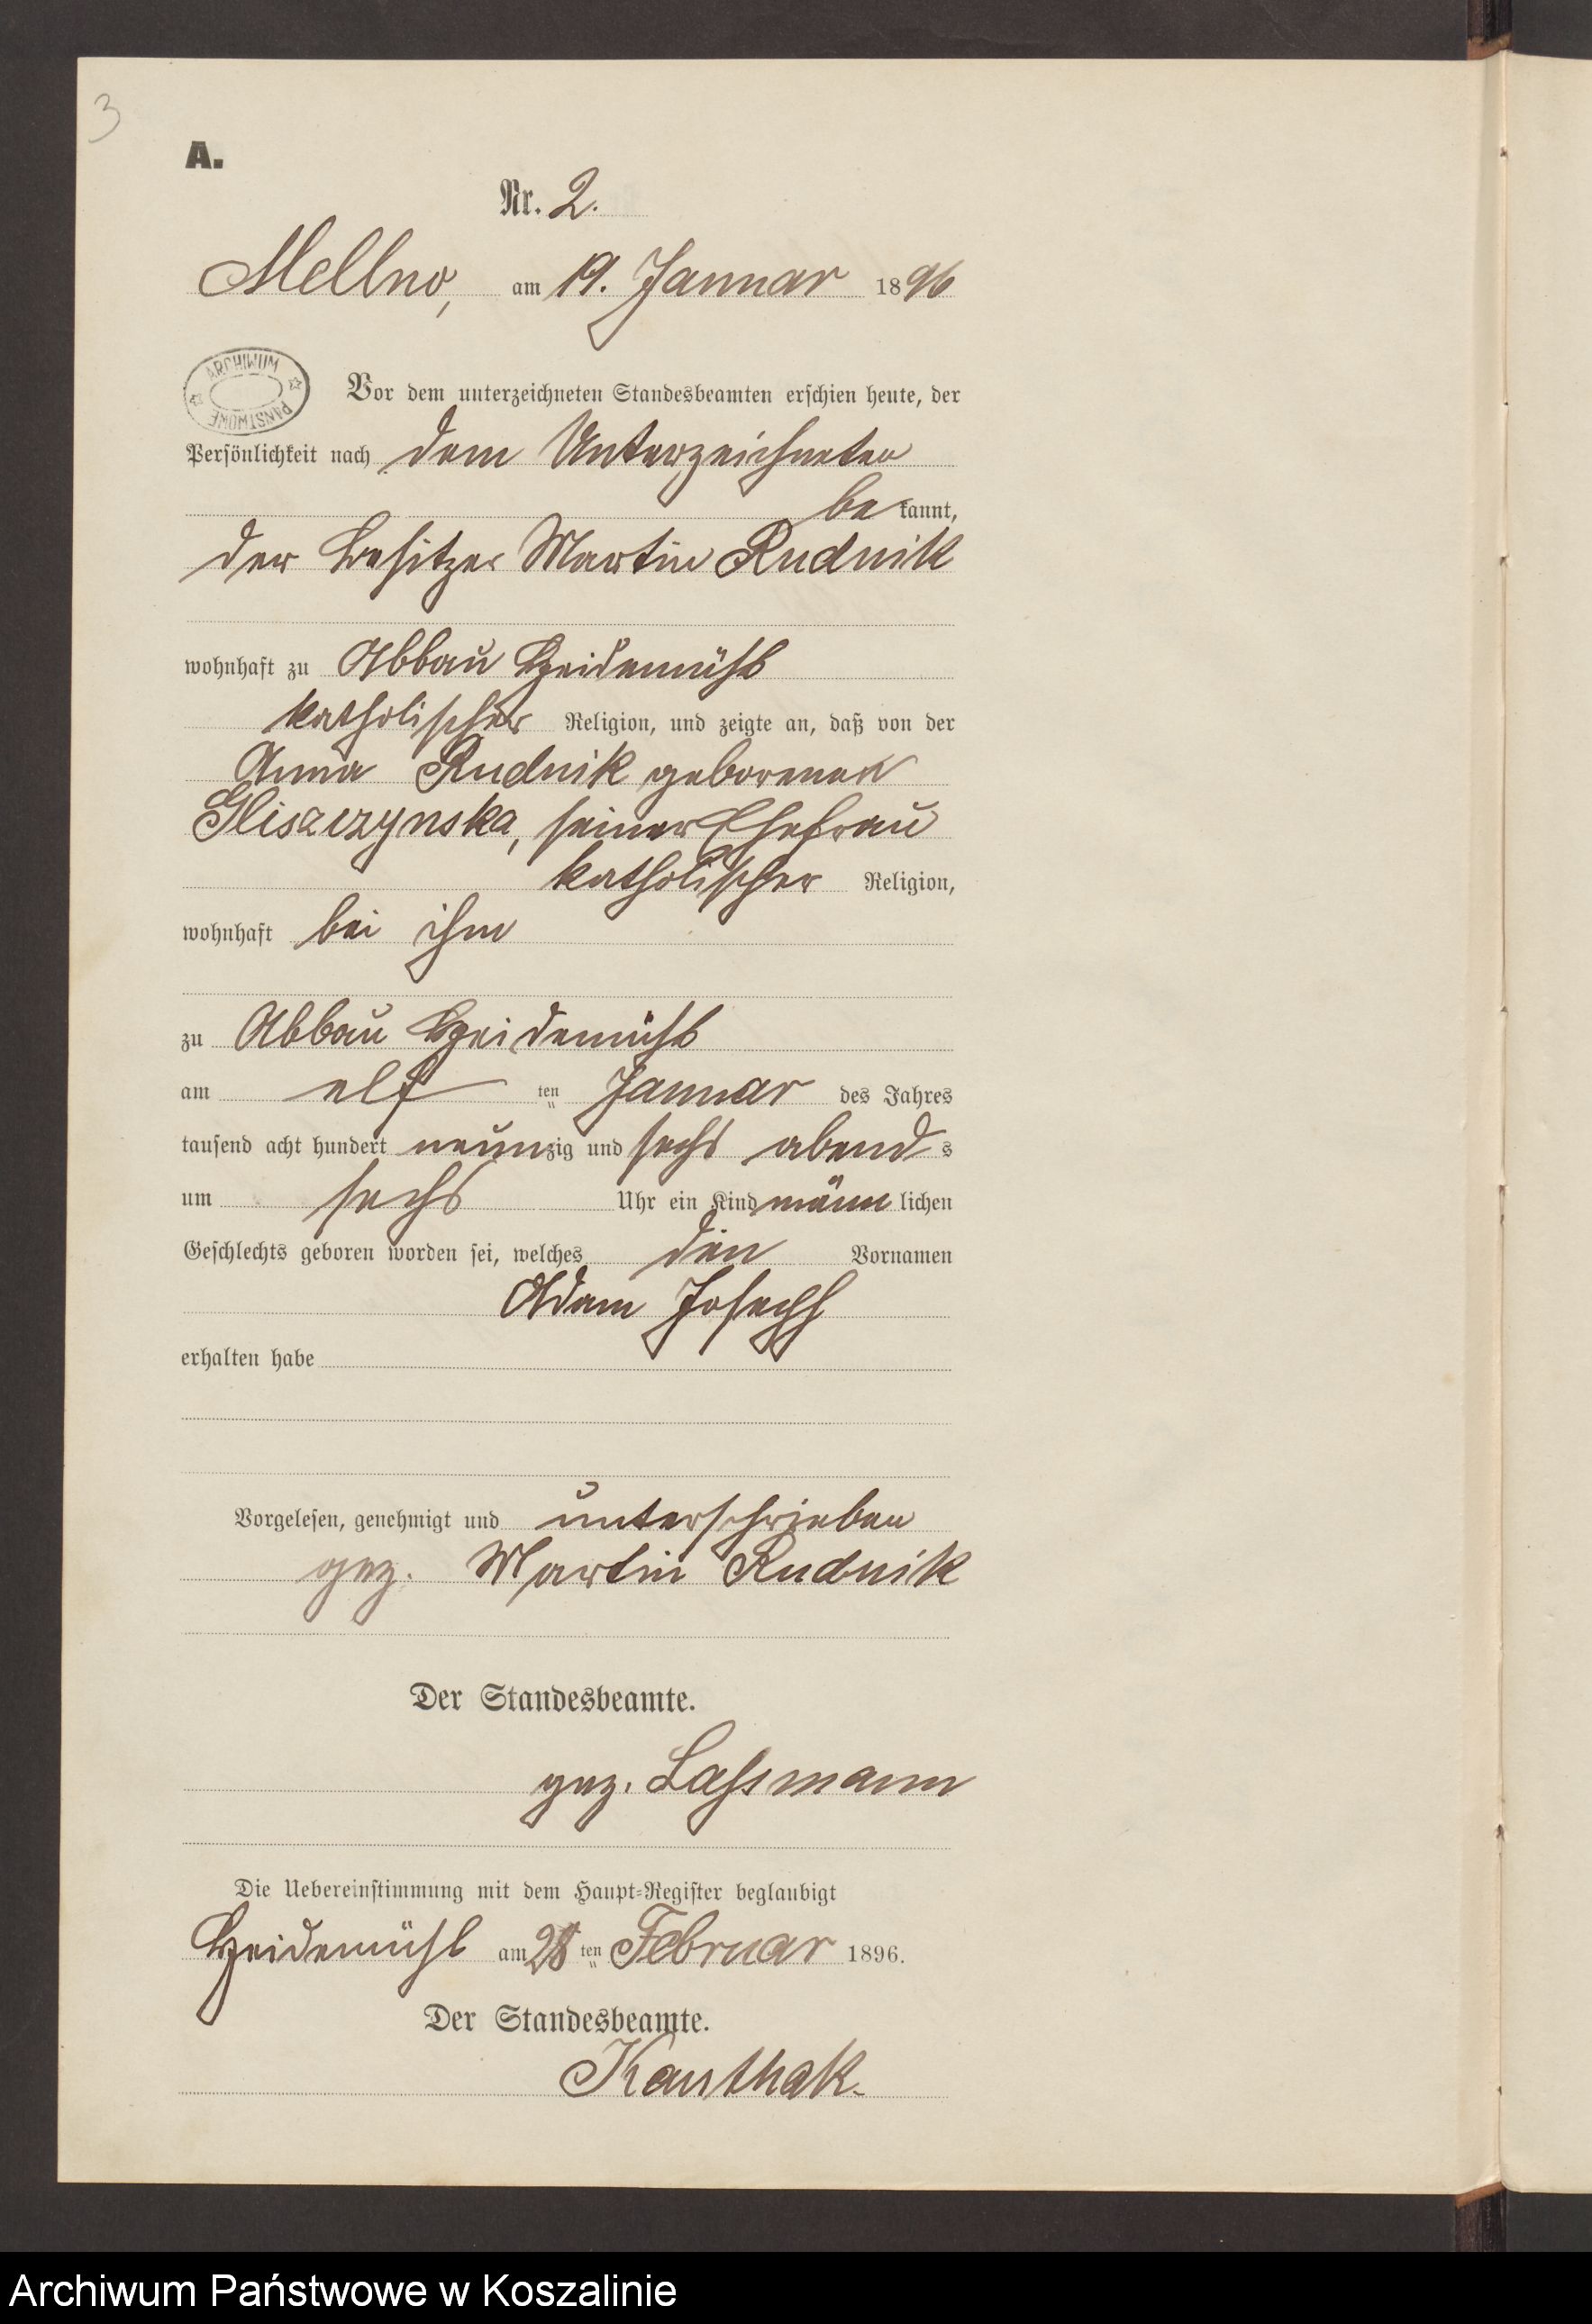 3
A.
Nr. 2.
Mellno, am 19. Januar 1896
ARCHIWUM PAŃSTWOWE
Vor dem unterzeichneten Standesbeamten erschien heute, der
Persönlichkeit nach dem Unterzeichneten
be kannt,
der Besitzer Martin Rudnik
wohnhaft zu Abbau Heidemühl
katholischer Religion, und zeigte an, daß von der
Anna Rudnik geborenen
Gliszczynska, seiner Ehefrau
katholischer Religion,
wohnhaft bei ihm
zu Abbau Heidemühl
am elf ten Januar des Jahres
tausend acht hundert neunzig und sechs abend s
um sechs Uhr ein Kind männ lichen
Geschlechts geboren worden sei, welches den Vornamen
Adam Joseph
erhalten habe
Vorgelesen, genehmigt und unterschrieben
gez. Martin Rudnik
Der Standesbeamte.
gez. Lassmann
Die Uebereinstimmung mit dem Haupt-Register beglaubigt
Heidemühl am 28 ten Februar 1896.
Der Standesbeamte.
Kauthak.
Archiwum Państwowe w Koszalinie